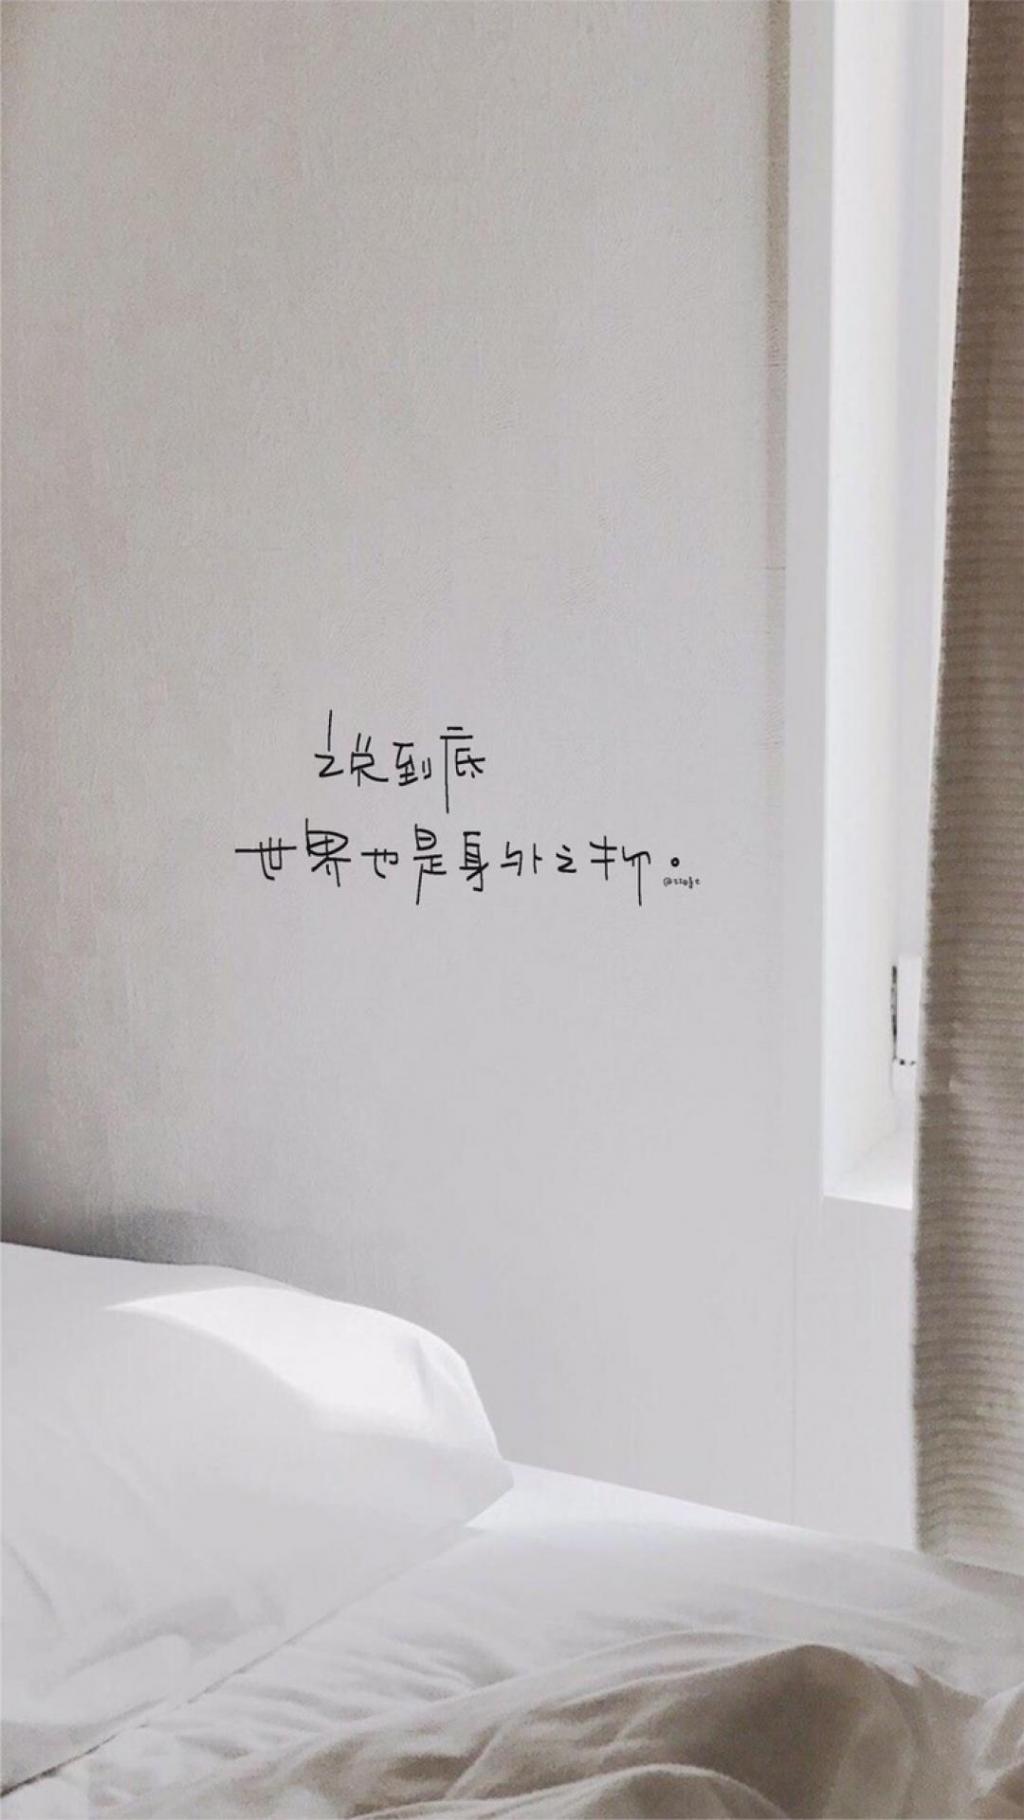 说到底
世界也是身外之物。